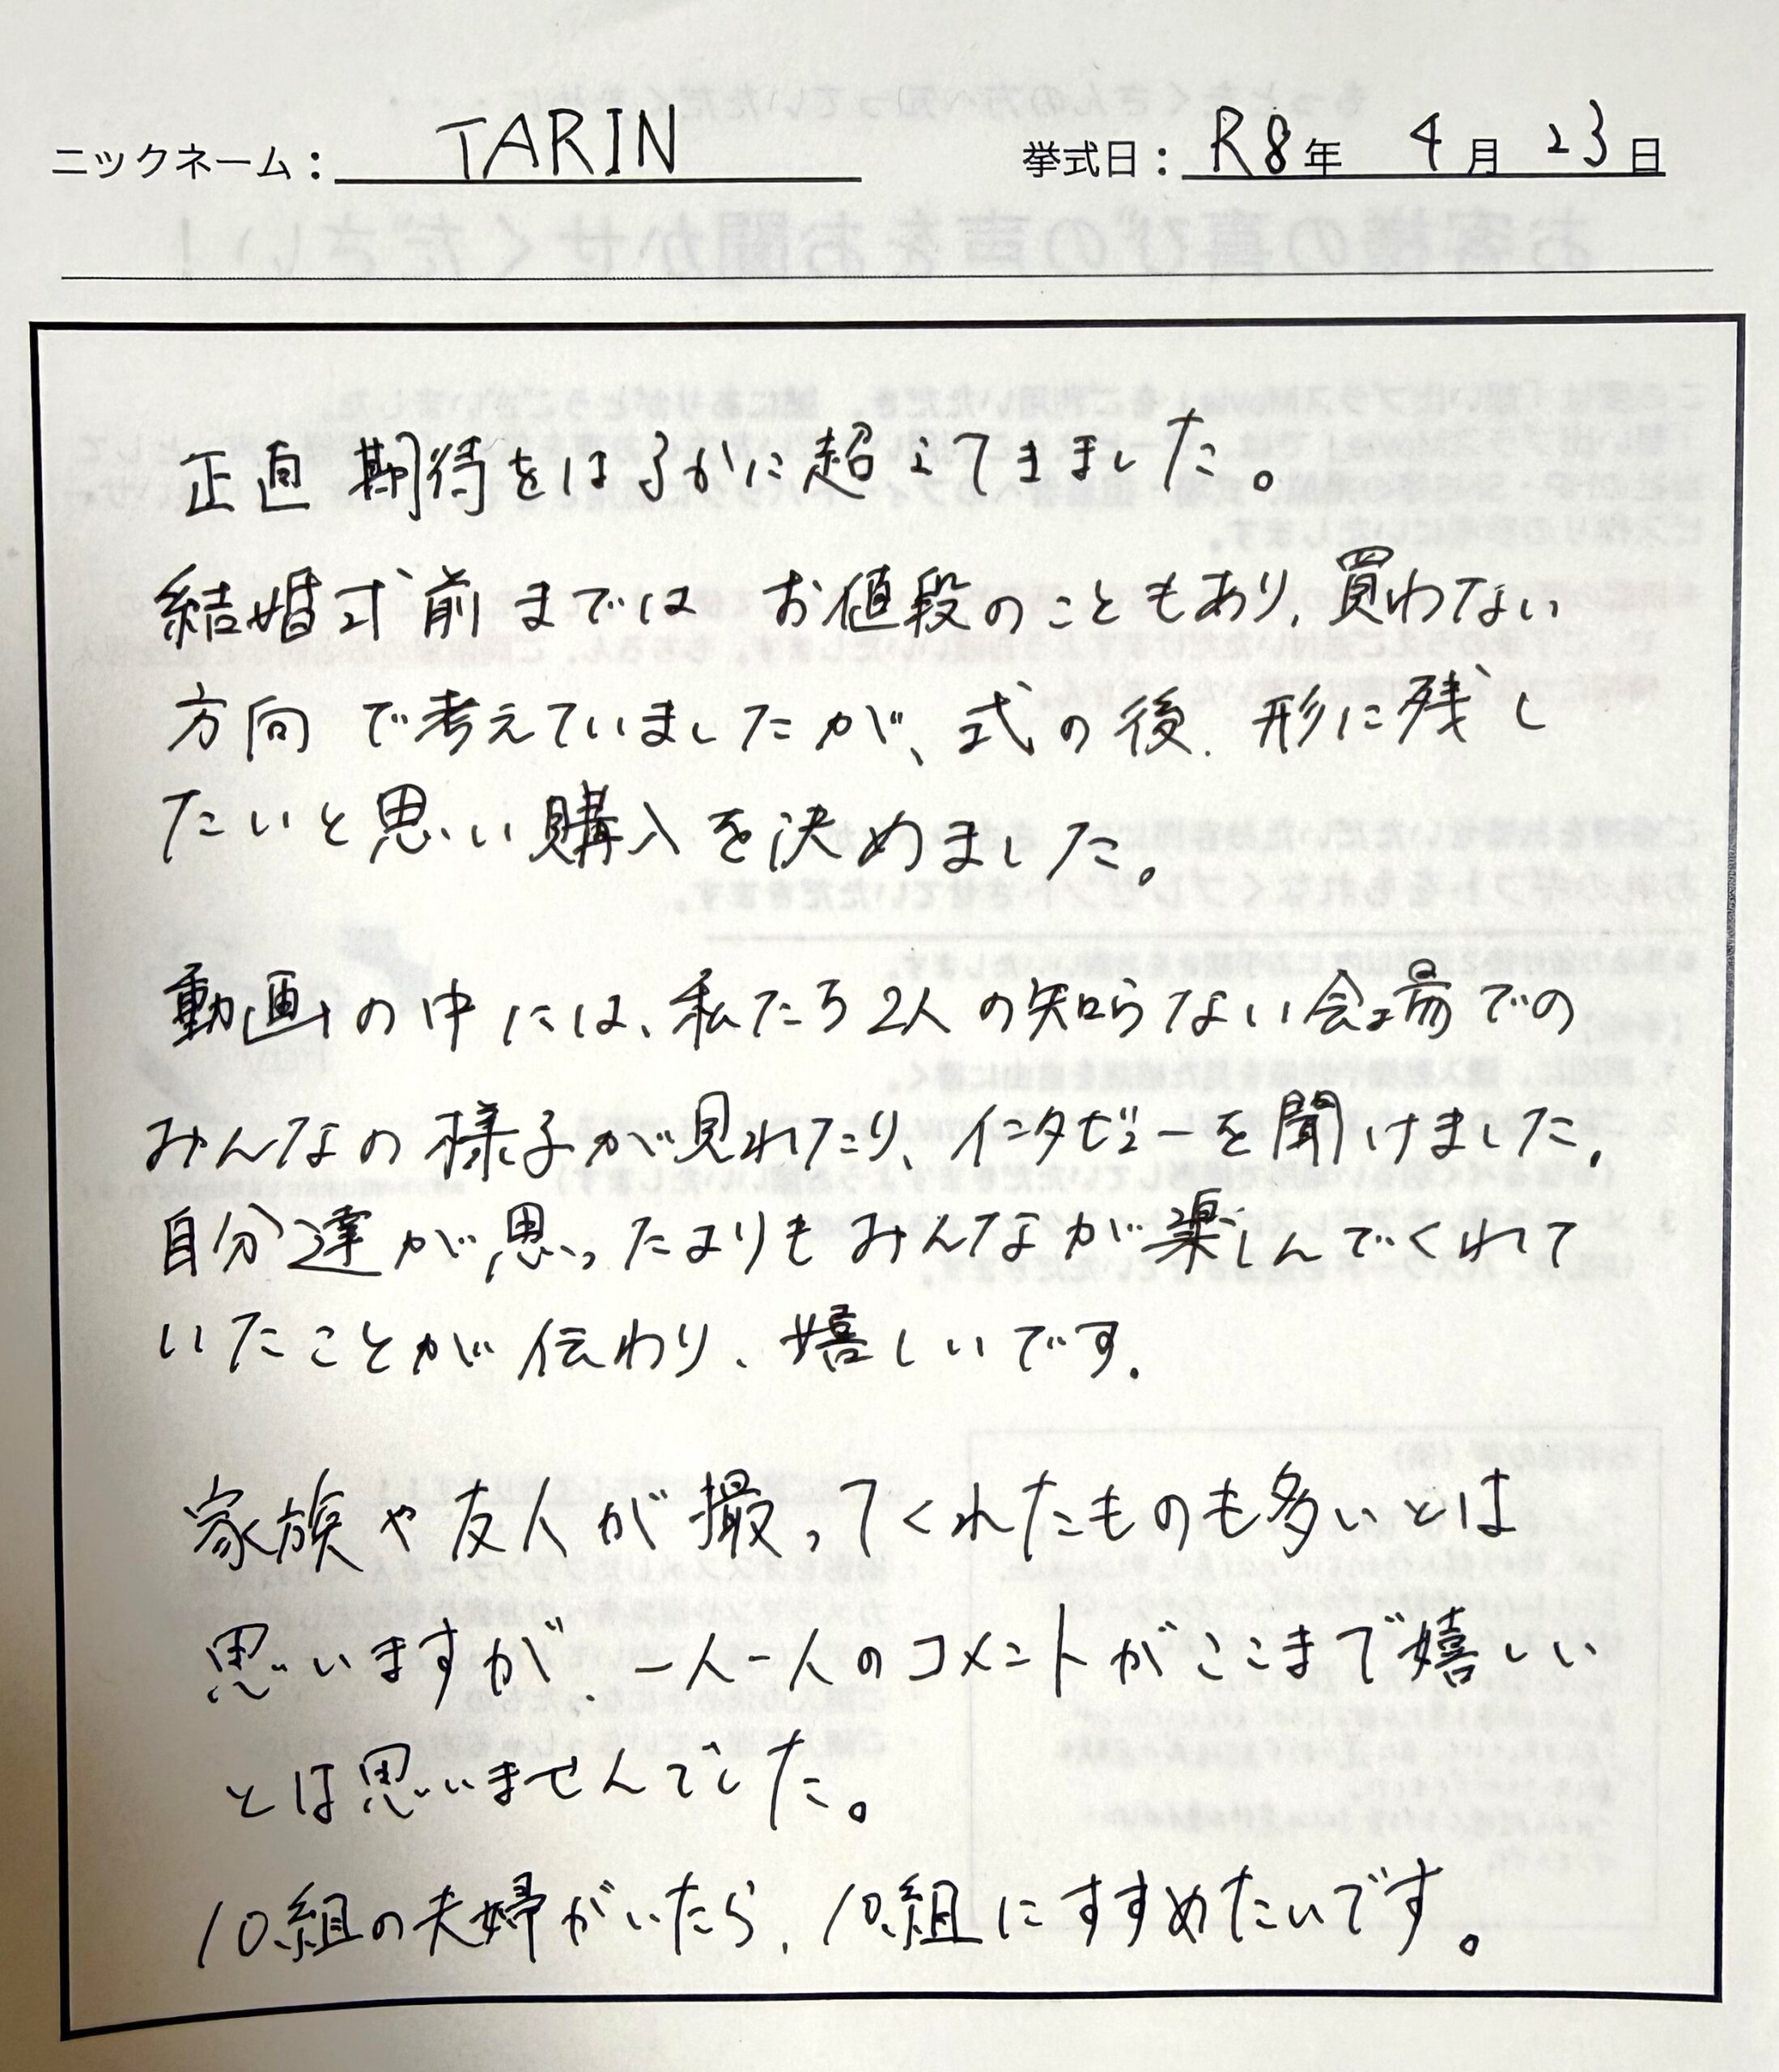 ニックネーム： TARIN 挙式日： R8年 4月 23日
正直 期待をはるかに超えてきました。
結婚式前までは お値段のこともあり、買わない
方向で考えていましたが、式の後、形に残し
たいと思い購入を決めました。
動画の中には、私たち2人の知らない会場での
みんなの様子が見れたり、インタビューを聞けました。
自分達が思ったよりもみんなが楽しんでくれて
いたことが伝わり、嬉しいです。
家族や友人が撮ってくれたものも多いとは
思いますが、一人一人のコメントがここまで嬉しい
とは思いませんでした。
10組の夫婦がいたら、10組にすすめたいです。